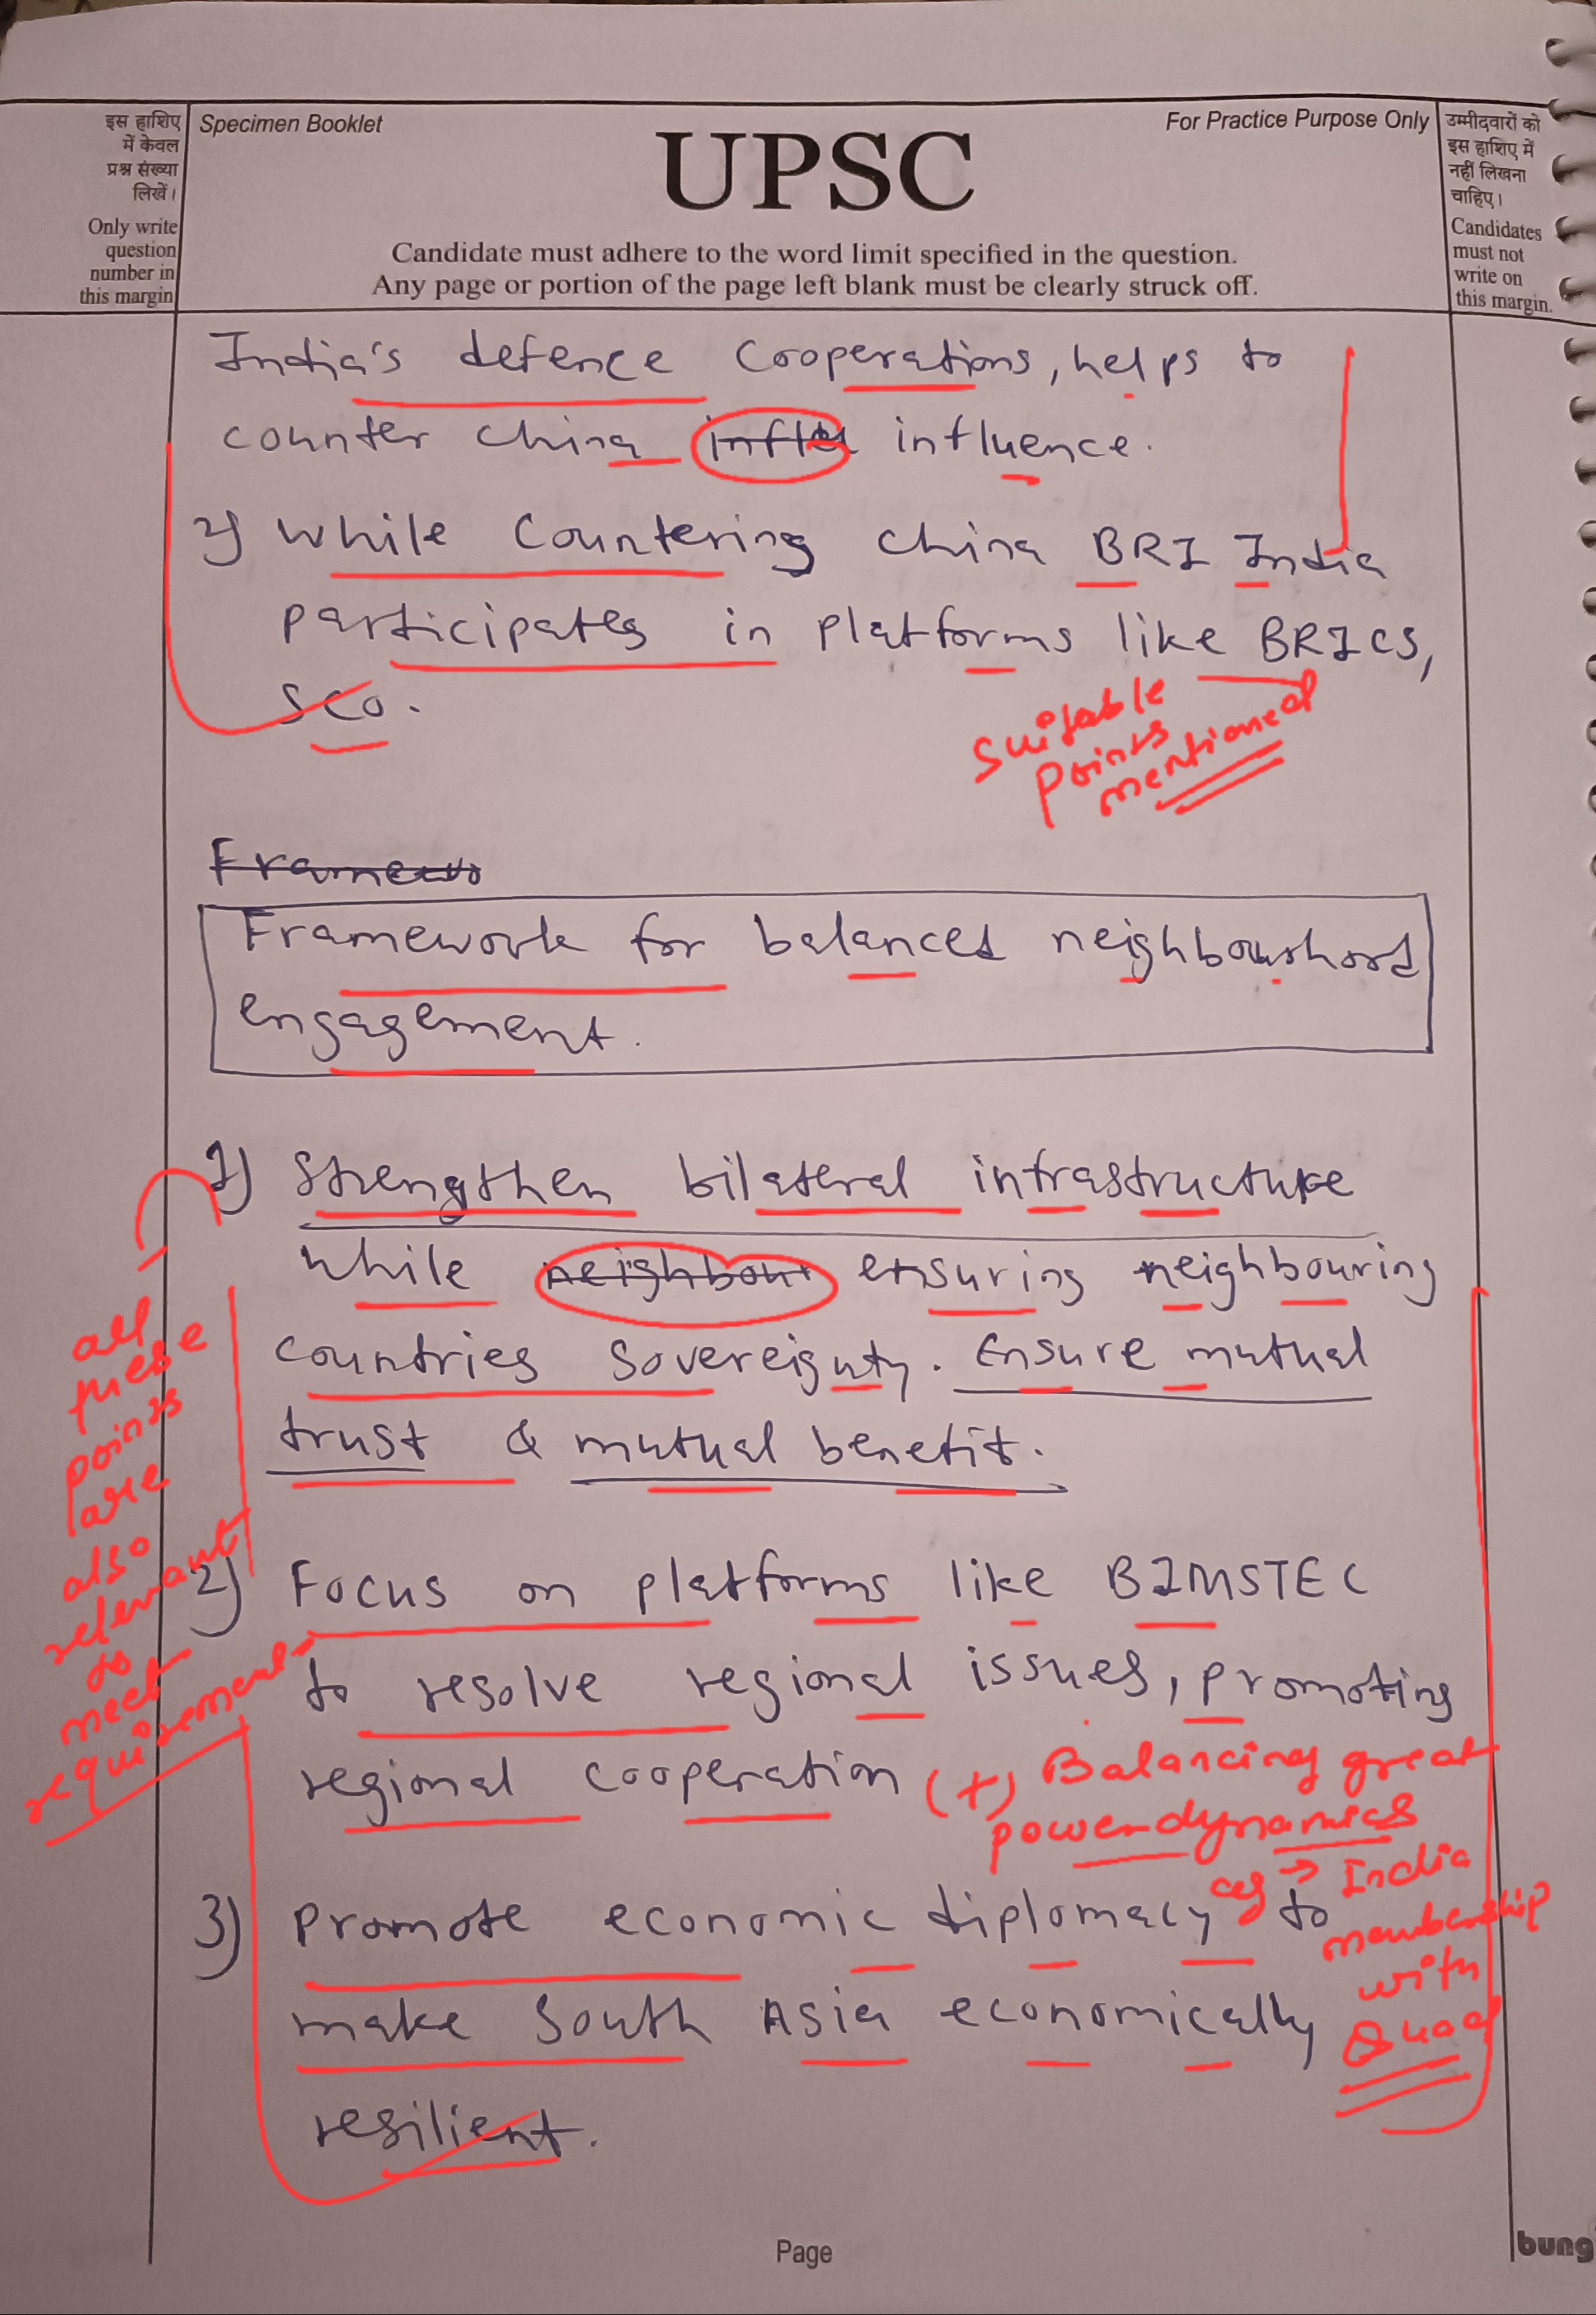 इस हाशिए
में केवल
प्रश्न संख्या
लिखें।
Only write
question
number in
this margin
Specimen Booklet
UPSC
For Practice Purpose Only
Candidate must adhere to the word limit specified in the question.
Any page or portion of the page left blank must be clearly struck off.
उम्मीदवारों को
इस हाशिए में
नहीं लिखना
चाहिए।
Candidates
must not
write on
this margin.
India's defence cooperations, helps to
counter china influence.
2) While countering china BRI India
participates in platforms like BRICS,
SCO.
Suitable
points
mentioned
Framewo
Framework for balanced neighbourhood
engagement.
1) Strengthen bilateral infrastructure
while neighbour ensuring neighbouring
countries sovereignty. Ensure mutual
trust & mutual benefit.
all
these
points
are
also
relevant
to
meet
requirement
2) Focus on platforms like BIMSTEC
to resolve regional issues, promoting
regional cooperation (+) Balancing great
power dynamics
eg → India
membership
with
Quad
3) Promote economic diplomacy to
make South Asia economically
resilient.
Page
bung